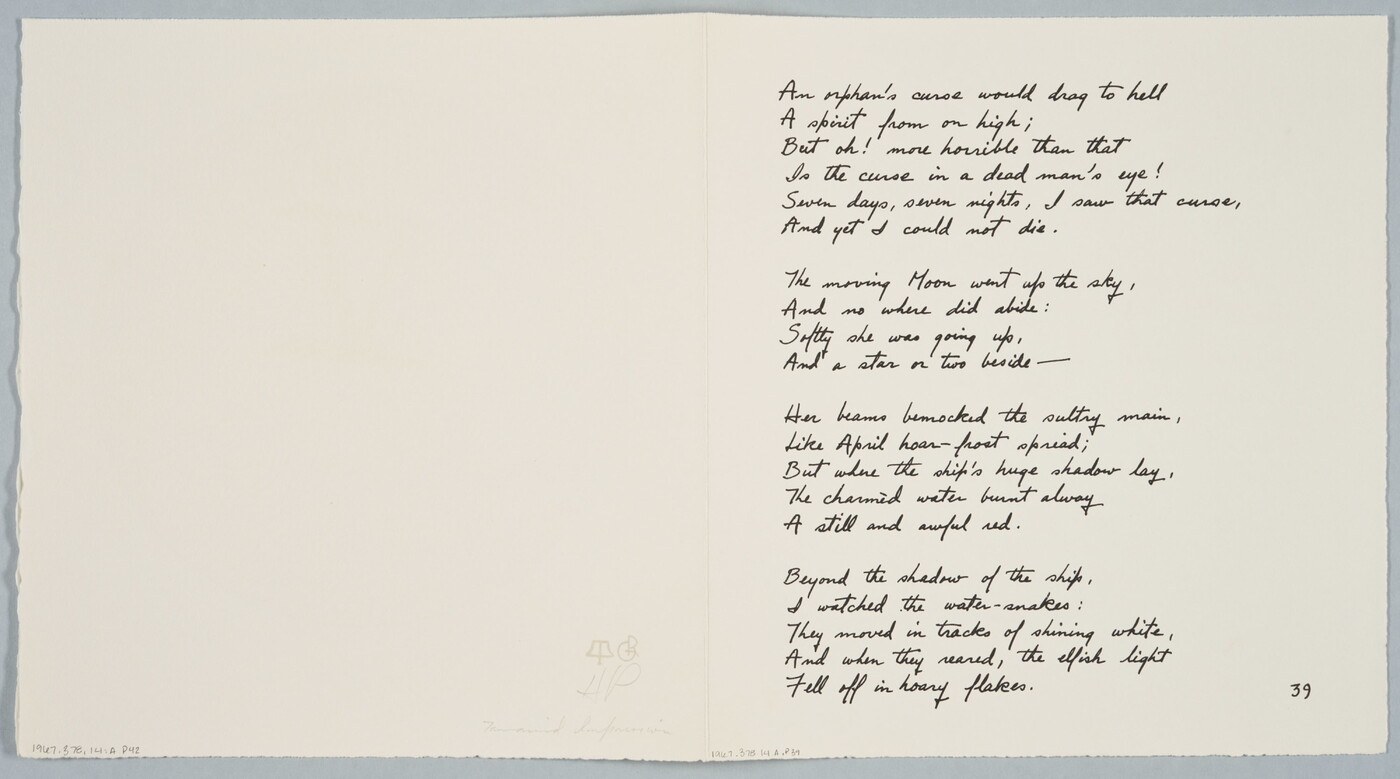 An orphan's curse would drag to hell
A spirit from on high;
But oh! more horrible than that
Is the curse in a dead man's eye!
Seven days, seven nights, I saw that curse,
And yet I could not die.
The moving Moon went up the sky,
And no where did abide:
Softly she was going up,
And a star or two beside—
Her beams bemocked the sultry main,
Like April hoar-frost spread;
But where the ship's huge shadow lay,
The charmèd water burnt alway
A still and awful red.
Beyond the shadow of the ship,
I watched the water-snakes:
They moved in tracks of shining white,
And when they reared, the elfish light
Fell off in hoary flakes.
39
HP
Impression
1967.378.14.A.P42
1967.378.14.A.P39